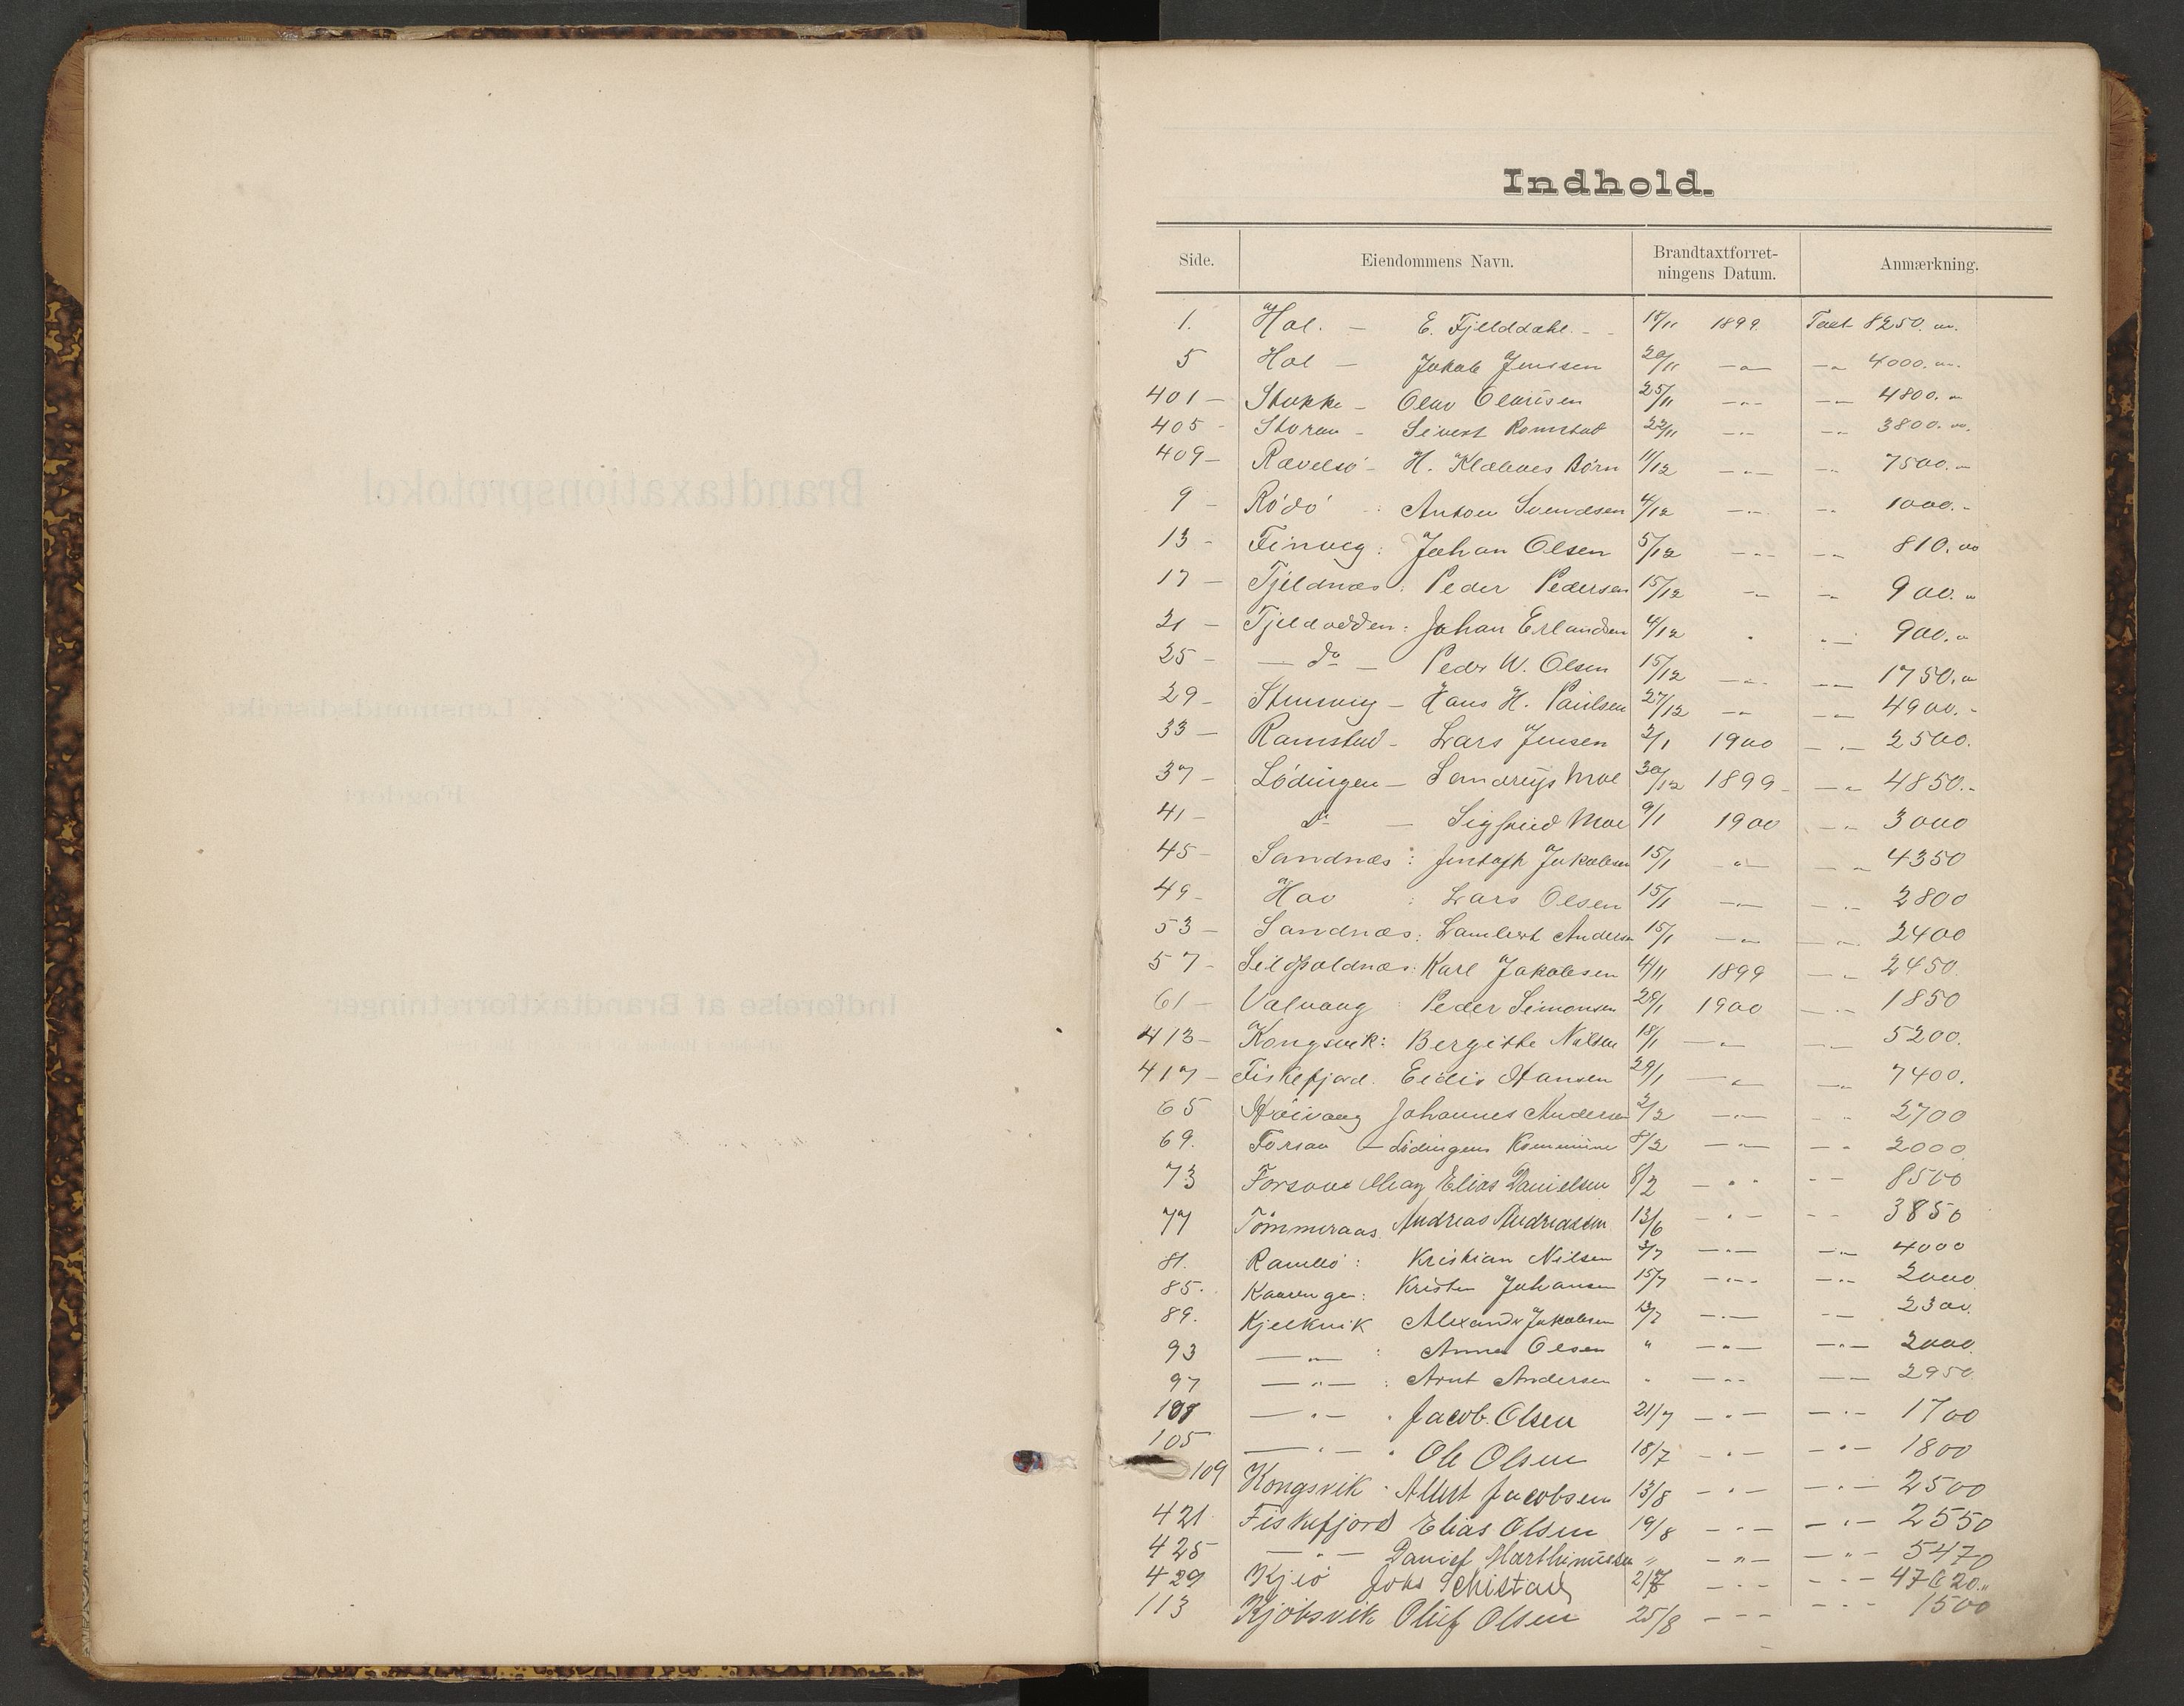 Indhold.
Side. Eiendommens Navn. Brandtaxtforret-ningens Datum. Anmærkning.
1. Hol. — E. Fjelddahl — 18/11 1899 Taxt 8250.
5 Hol — Jakob Jenssen 20/11 —"— —" 4000.
401 — Stokke — Olav Olaussen 25/11 —"— —"— 4800.
405 - Storau - Sivert Ramstad 22/11 —"— —"— 3800.
409 — Rævelsö - H. Klæboes Börn 11/12 —"— —"— 7500.
9 - Rödö : Anton Svendsen 4/12 —"— —"— 1000.-
13 - Finveg : Johan Olsen 5/12 —"— —"— 810.00
17 — Tjeldnæs : Peder Pedersen 15/12 —"— —"— 900.
21 — Tjeldodden : Johan Erlandsen 4/12 " "— 900.
25 - — do — Peder W. Olsen 15/12 —"— —"— 1750.
29 - Stunveg — Hans H. Paulsen 27/12 —"— —"— 4900.-
33 — Ramstad - Lars Jensen 2/1 1900 —"— 2500.
37 — Lödingen — Moe 30/12 1899 - —"— 4850.-
41 — do — Sigfried Moe 9/1 1900 —"— 3000
45 - Sandnæs : Jentoft Jakobsen 15/1 —"— —"— 4350
49 - Hov : Lars Olsen 15/1 —"— —"— 2800
53 — Sandnæs : Lambert Andersen 15/1 —"— —"— 2400
57 - Seilfoldnæs : Karl Jakobsen 4/11 1899 —"— 2450.
61 — Valvaag : Peder Simonsen 26/1 1900 —"— 1850
413 — Kongsvik : Bergitte Nilsen 18/1 —"— —"— 5200.
417 — Fiskefjord. Eidis Hansen 29/1 —"— —"— 7400.
65 Johannes Andersen 2/2 —"— —"— 2700
69. Forsau — Lödingens Kommune 8/2 —"— —"— 2000
73 Elias Danielsen 8/2 —"— —"— 8500
77 Tömmeraas. Andreas Andreassen 13/6 —"— —"— 3850
81. Ramsö : Kristian Nilsen 3/7 —"— —"— 4000
85. Kaaringen : Kristen Johansen 15/7 —"— —"— 2000
89. Kjelkvik Alexander Jakobsen 13/7 —"— —"— 2300.
93 —"— : Anna Olsen " —"— —"— 2000.
97 —"— : Arnt Andersen " —"— —"— 2950.
101 —"— " Jacob Olsen 21/7 —"— —"— 1700
105 —"— " Ole Olsen 18/7 —"— —"— 1800
109 Kongsvik " Albert Jacobsen 13/8 —"— —"— 2500
421 Fiskefjord Elias Olsen 19/8 —"— —"— 2550
425 —"— Daniel Marthinussen " —"— —"— 5470
429 Kjeö Johs Schistad 21/8 —"— —"— 47620.
113 Kjöbsvik Oluf Olsen 25/8 —"— —"— 1500